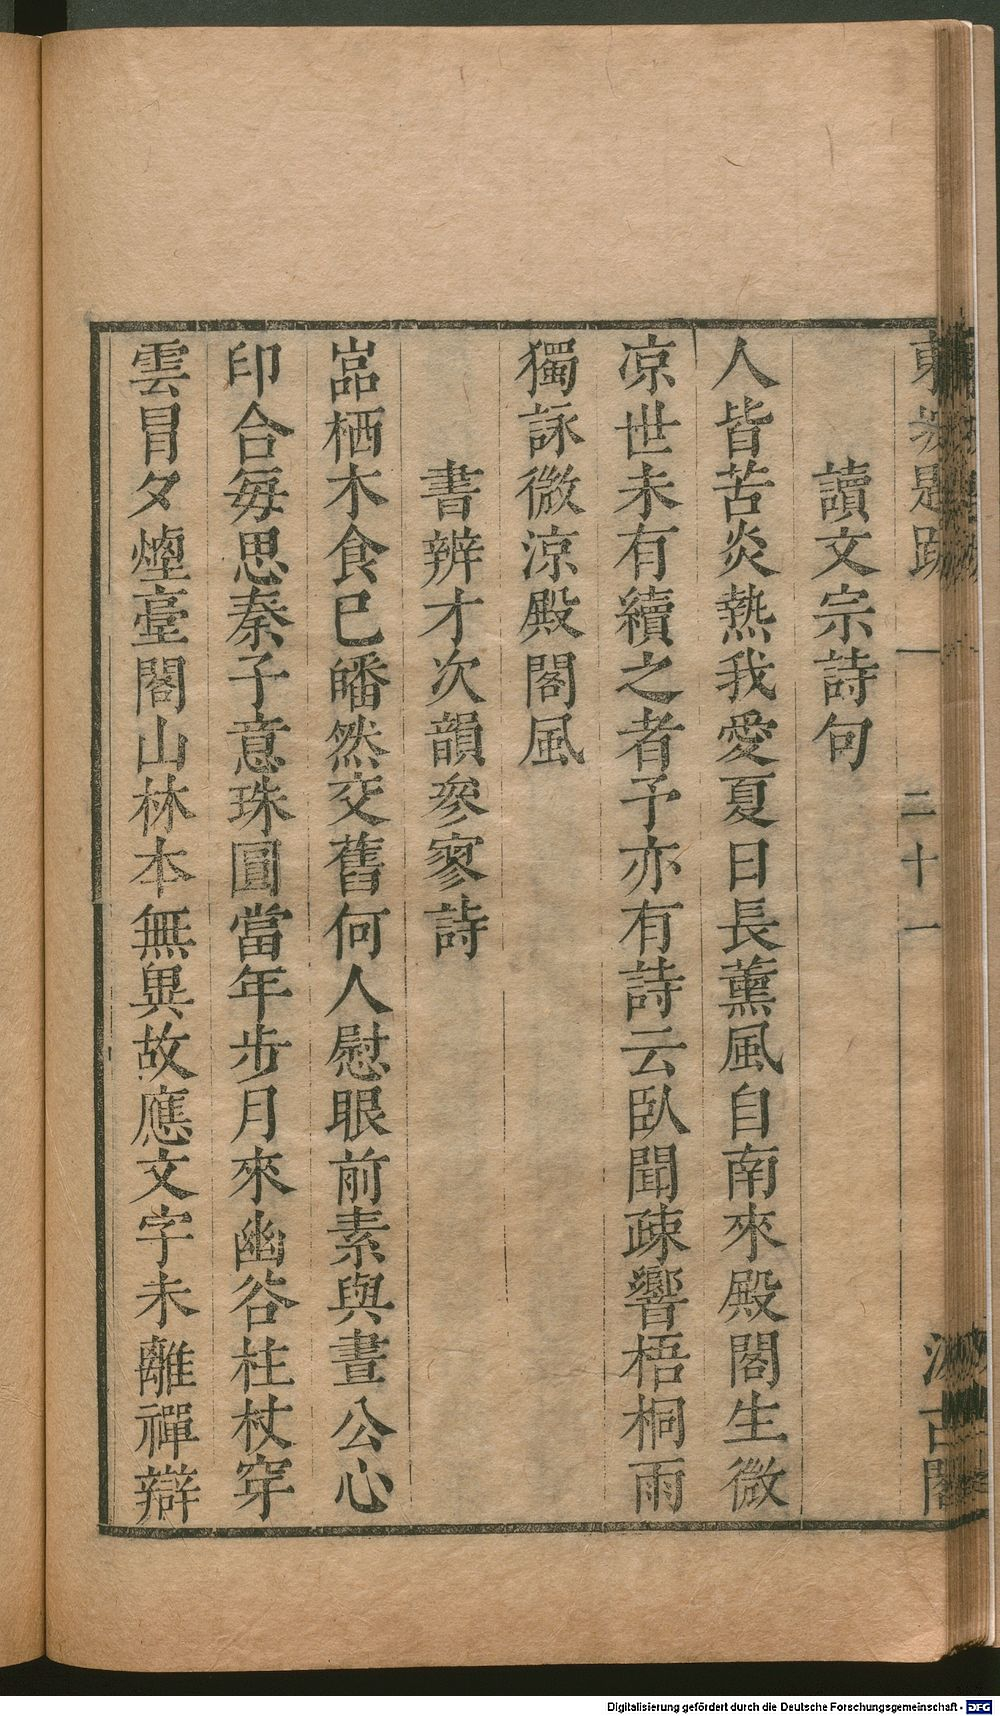 東坡題跋 一 二十一 汲古閣
讀文宗詩句
人皆苦炎熱我愛夏日長薰風自南來殿閣生微
凉世未有續之者予亦有詩云臥聞疎響梧桐雨
獨詠微涼殿閣風
書辨才次韻參寥詩
嵓栖木食已皤然交舊何人慰眼前素與晝公心
印合每思秦子意珠圓當年步月來幽谷柱杖穿
雲冒夕煙臺閣山林本無異故應文字未離禪辯
Digitalisierung gefördert durch die Deutsche Forschungsgemeinschaft - DFG